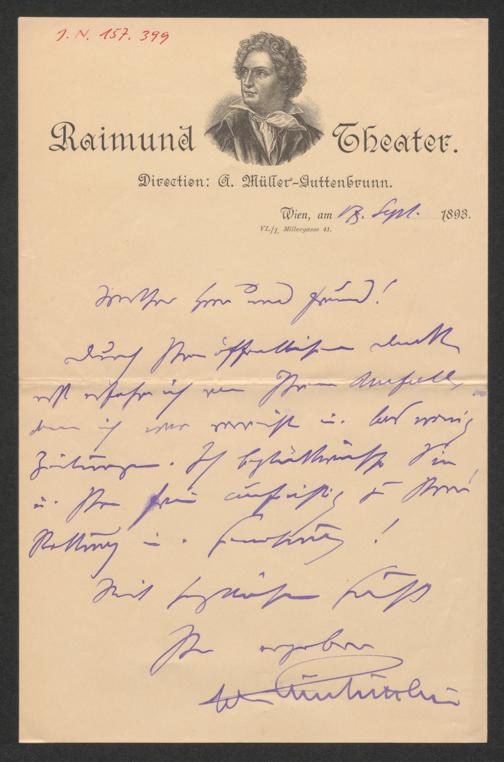 J. N. 157.399
Raimund Theater.
Direction: A. Müller-Guttenbrunn.
Wien, am 18. Sept. 1893.
VI./1, Millergasse 41.
Werther Herr und Freund!
Durch Ihren öffentlichen Dank
erst erfahre ich von Ihrem Unfall,
denn ich war verreist u. las wenig
Zeitungen. Ich beglückwünsche Sie
u. Ihre Frau aufrichtig zu Ihrer
Rettung u.
Mit herzlichem Gruß
Ihr ergebener